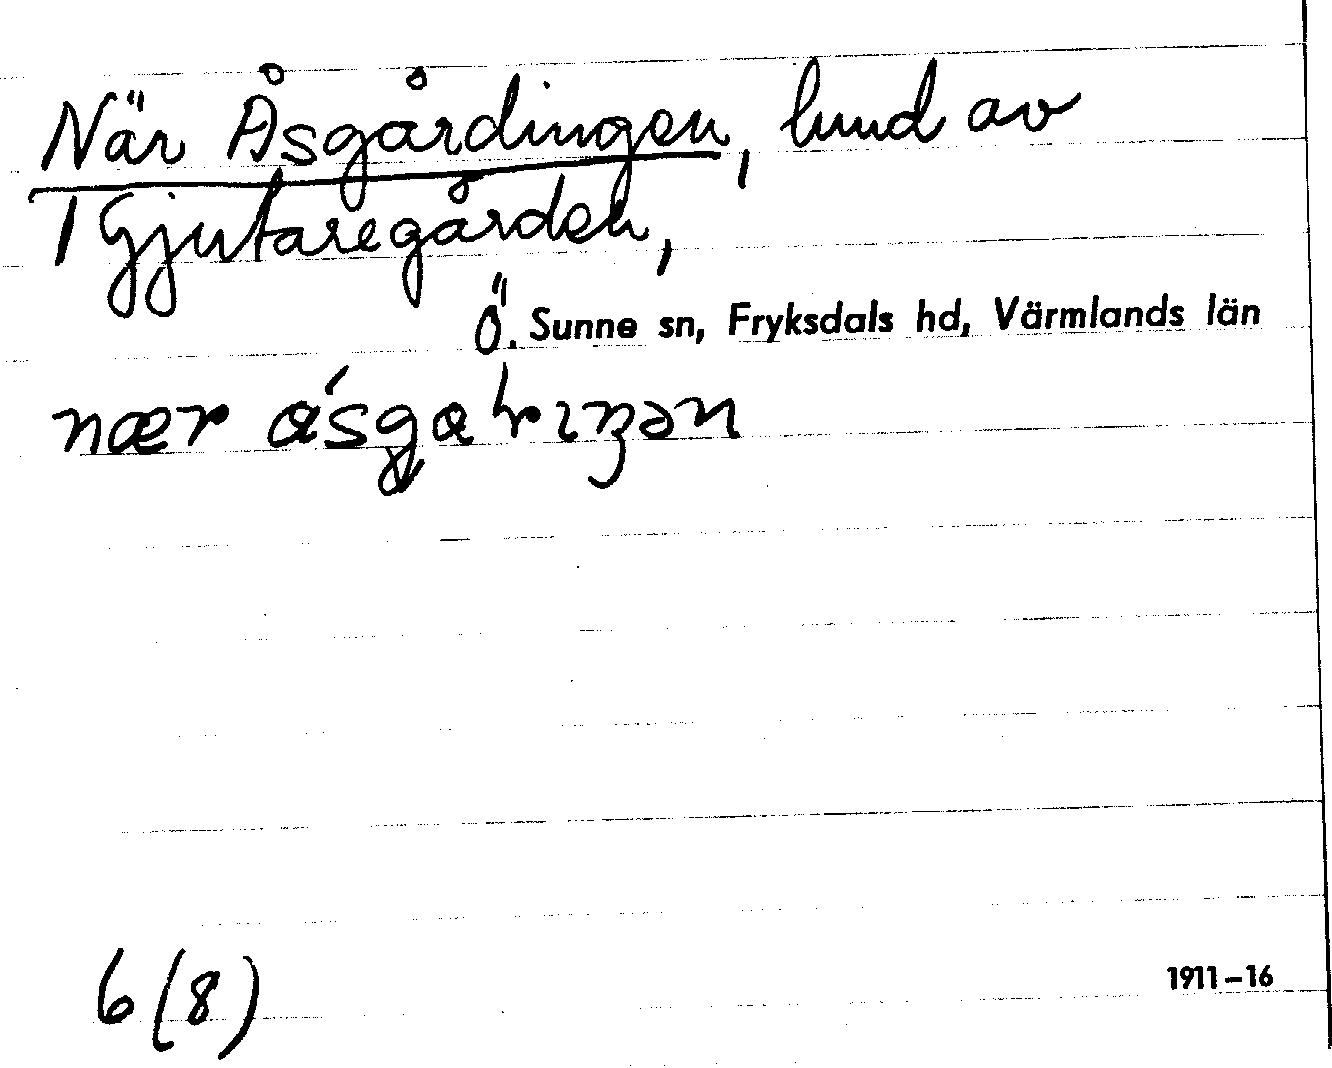 När Åsgårdingen, lund av
1 Gjutaregården,
Ö. Sunne sn, Fryksdals hd, Värmlands län
nær
6 (8)
1911–16